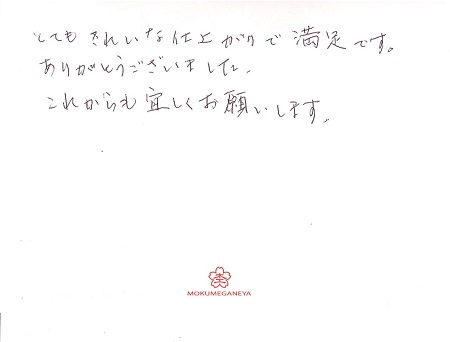 とてもきれいな仕上がりで満足です。
ありがとうございました。
これからも宜しくお願いします。
MOKUMEGANEYA